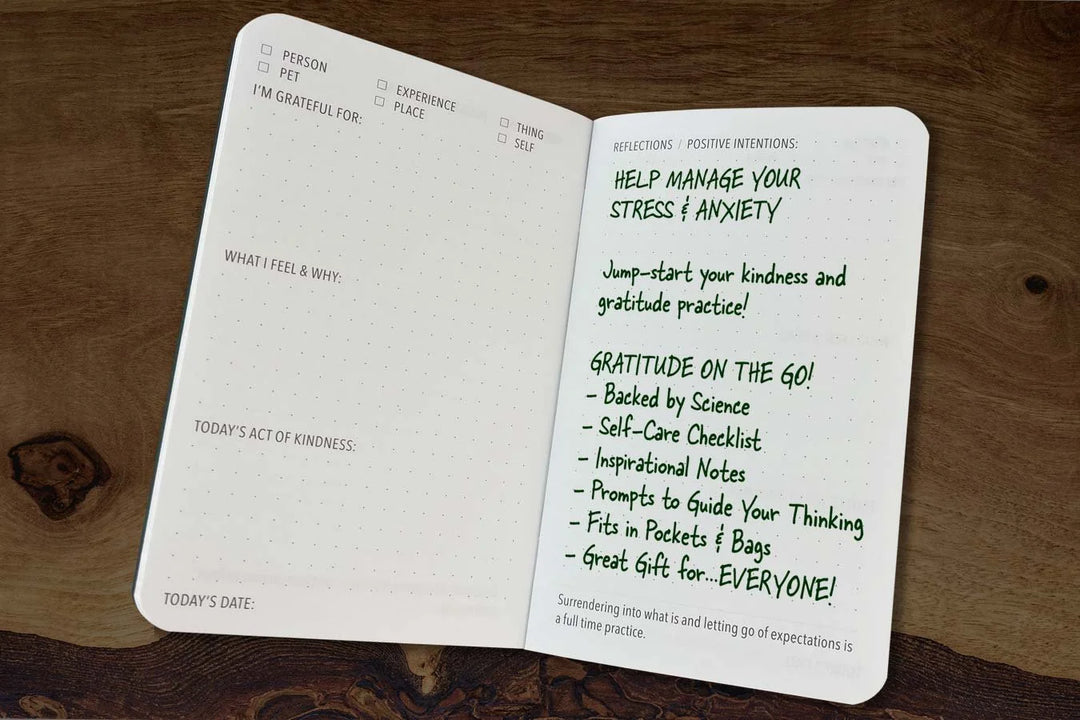 ☐ PERSON
☐ PET
☐ EXPERIENCE
☐ PLACE
☐ THING
☐ SELF
I'M GRATEFUL FOR:
WHAT I FEEL & WHY:
TODAY'S ACT OF KINDNESS:
TODAY'S DATE:
REFLECTIONS / POSITIVE INTENTIONS:
HELP MANAGE YOUR
STRESS & ANXIETY
Jump-start your kindness and
gratitude practice!
GRATITUDE ON THE GO!
- Backed by Science
- Self-Care Checklist
- Inspirational Notes
- Prompts to Guide Your Thinking
- Fits in Pockets & Bags
- Great Gift for...EVERYONE!
Surrendering into what is and letting go of expectations is
a full time practice.